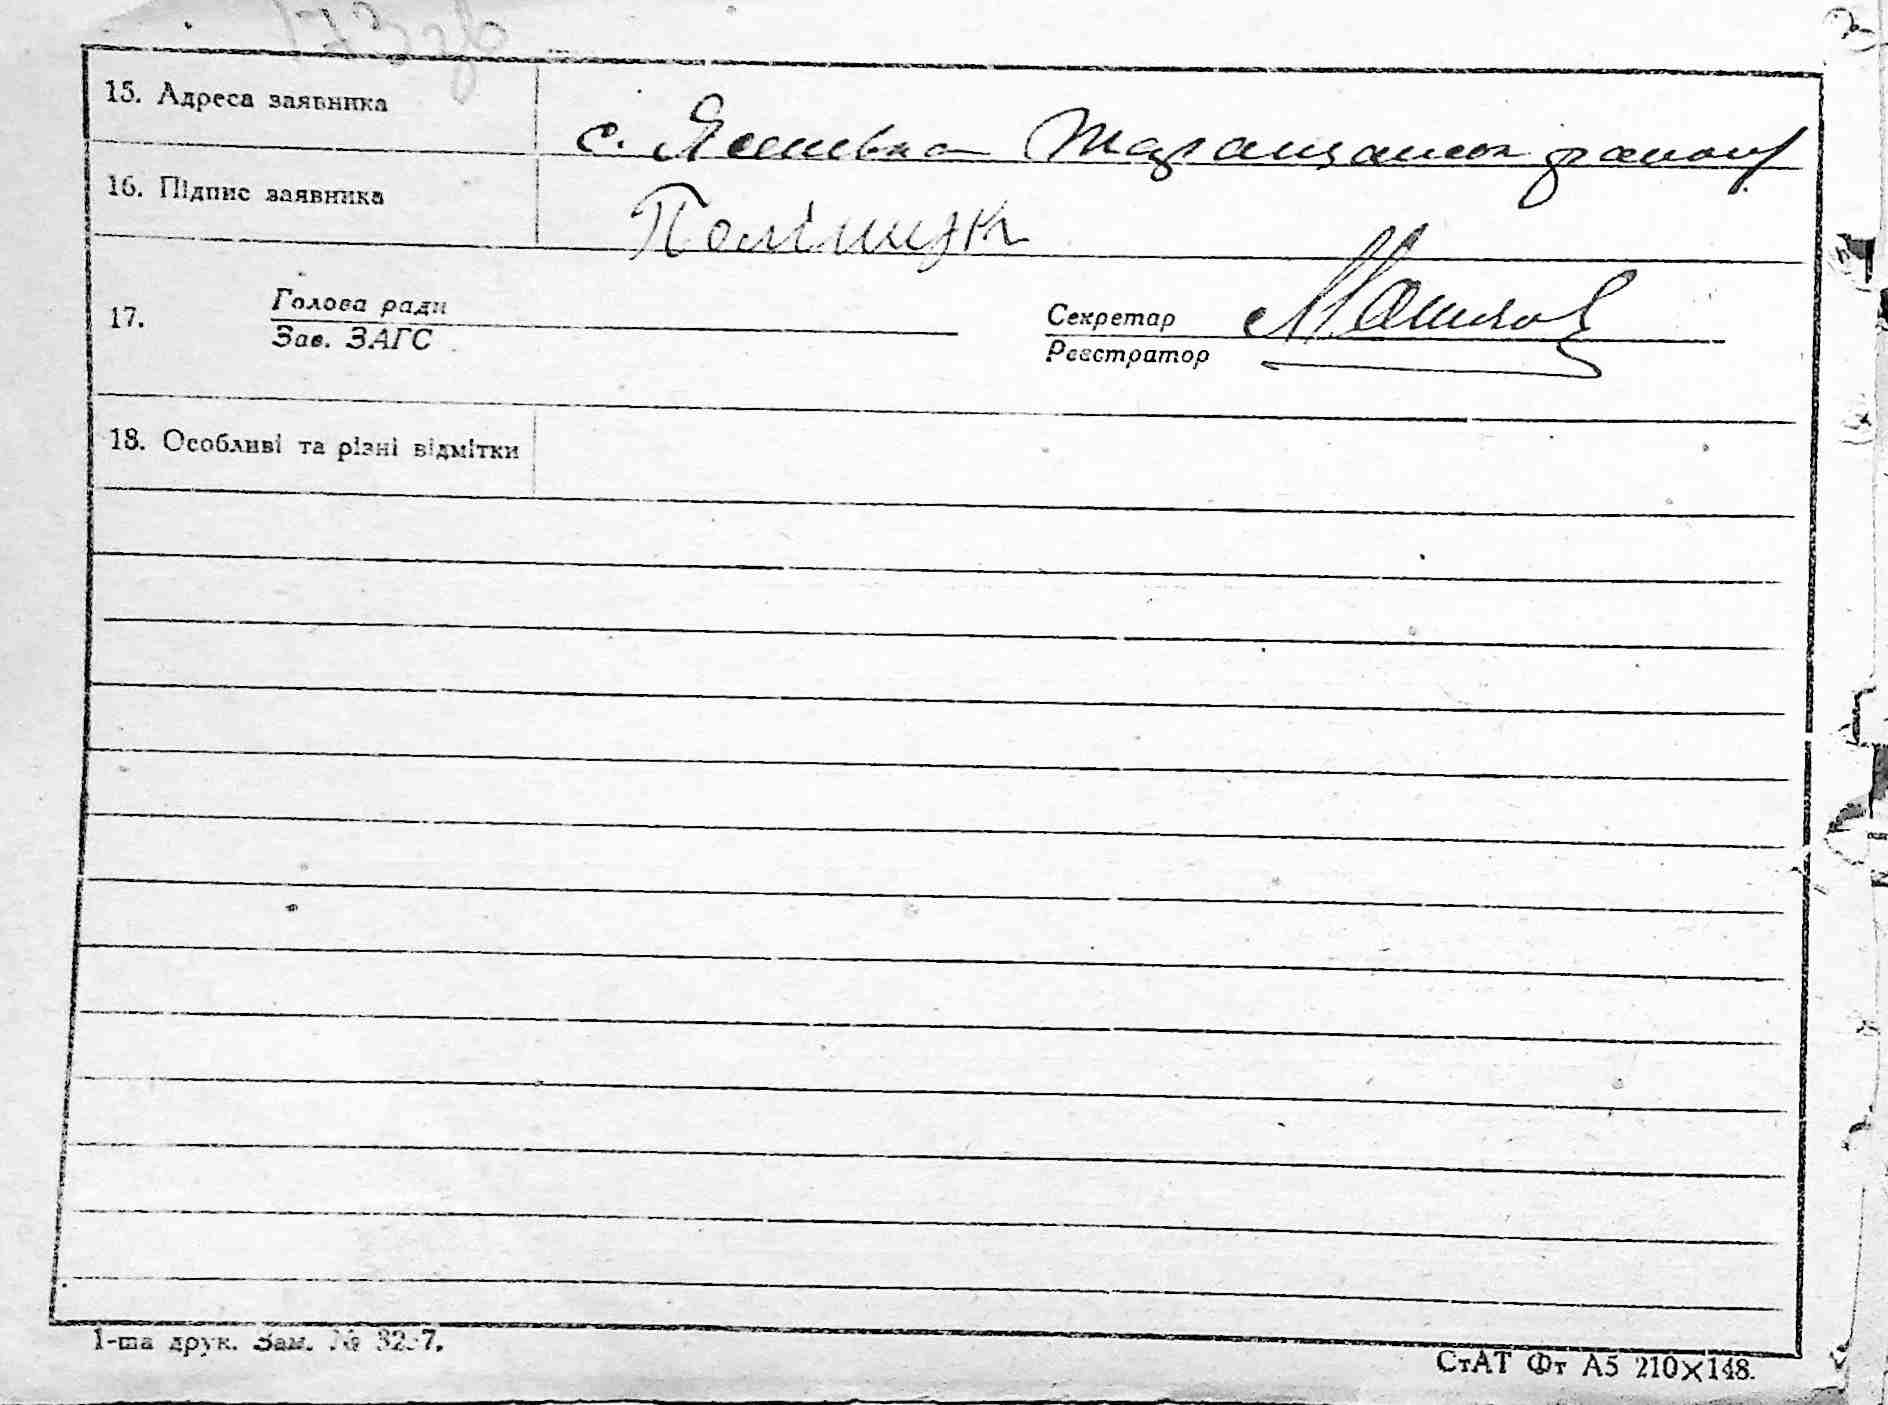 15. Адреса заявника
с. Яснивка Таращанськ району
16. Підпис заявника
Поліщук
17. Голова ради
Зав. ЗАГС
Секретар
Реєстратор
18. Особливі та різні відмітки
1-ша друк. Зам. №
СтАТ Фт А5 210×148.